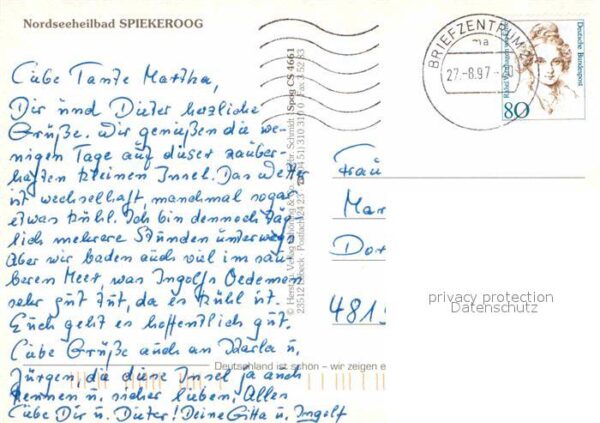 Nordseeheilbad SPIEKEROOG
Liebe Tante Martha,
Dir und Dieter herzliche
Grüße. Wir genießen die we-
nigen Tage auf dieser zauber-
haften kleinen Insel. Das Wetter
ist wechselhaft, manchmal sogar
etwas kühl. Ich bin dennoch täg-
lich mehrere Stunden unterwegs
Aber wir baden auch viel im sau-
beren Meer, was Ingolfs Oedemen
sehr gut tut, da es kühl ist.
Euch geht es hoffentlich gut.
Liebe Grüße auch an Karla u.
Jürgen, die diese Insel ja auch
kennen u. sicher lieben. Alles
Liebe Dir u. Dieter! Deine Gitta u. Ingolf
Spog CS 4661
Deutschland ist schön – wir zeigen e
BRIEFZENTRUM 2
27.-8.97
Deutsche Bundespost
80
Frau
Mar
Dor
481
privacy protection
Datenschutz